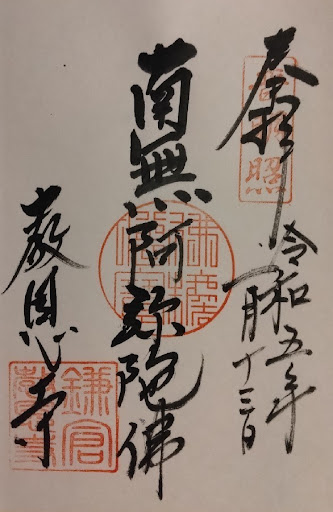 奉拝
令和五年
一月十三日
南無阿弥陀佛
教恩寺
鎌倉
教恩寺